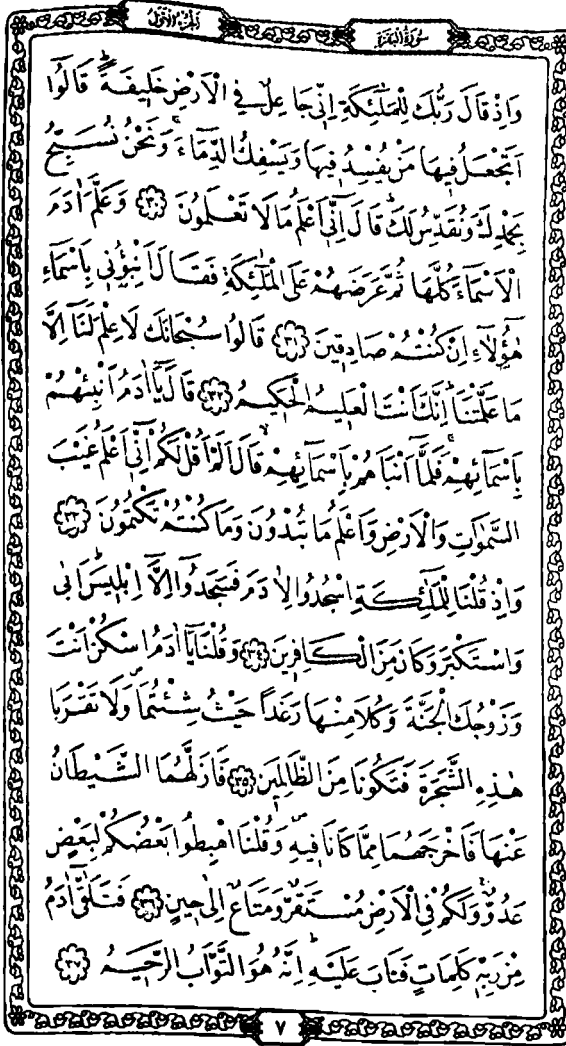 سُورَةُ الْبَقَرَةِ
اَلْجُزْءُ الْاَوَّلُ
وَاِذْ قَالَ رَبُّكَ لِلْمَلٰٓئِكَةِ اِنّٖى جَاعِلٌ فِى الْاَرْضِ خَلٖيفَةًۜ قَالُٓوا
اَتَجْعَلُ فٖيهَا مَنْ يُفْسِدُ فٖيهَا وَيَسْفِكُ الدِّمَٓاءَۚ وَنَحْنُ نُسَبِّحُ
بِحَمْدِكَ وَنُقَدِّسُ لَكَۜ قَالَ اِنّٖٓى اَعْلَمُ مَا لَا تَعْلَمُونَ ﴿٣٠﴾ وَعَلَّمَ اٰدَمَ
الْاَسْمَٓاءَ كُلَّهَا ثُمَّ عَرَضَهُمْ عَلَى الْمَلٰٓئِكَةِ فَقَالَ اَنْبِؤُ۫نٖى بِاَسْمَٓاءِ
هٰٓؤُ۬لَٓاءِ اِنْ كُنْتُمْ صَادِقٖينَ ﴿٣١﴾ قَالُوا سُبْحَانَكَ لَا عِلْمَ لَنَٓا اِلَّا
مَا عَلَّمْتَنَاۜ اِنَّكَ اَنْتَ الْعَلٖيمُ الْحَكٖيمُ ﴿٣٢﴾ قَالَ يَٓا اٰدَمُ اَنْبِئْهُمْ
بِاَسْمَٓائِهِمْۚ فَلَمَّٓا اَنْبَاَهُمْ بِاَسْمَٓائِهِمْۙ قَالَ اَلَمْ اَقُلْ لَكُمْ اِنّٖٓى اَعْلَمُ غَيْبَ
السَّمٰوَاتِ وَالْاَرْضِ وَاَعْلَمُ مَا تُبْدُونَ وَمَا كُنْتُمْ تَكْتُمُونَ ﴿٣٣﴾
وَاِذْ قُلْنَا لِلْمَلٰٓئِكَةِ اسْجُدُوا لِاٰدَمَ فَسَجَدُٓوا اِلَّٓا اِبْلٖيسَۜ اَبٰى
وَاسْتَكْبَرَ وَكَانَ مِنَ الْكَافِرٖينَ ﴿٣٤﴾ وَقُلْنَا يَٓا اٰدَمُ اسْكُنْ اَنْتَ
وَزَوْجُكَ الْجَنَّةَ وَكُلَا مِنْهَا رَغَدًا حَيْثُ شِئْتُمَاۖ وَلَا تَقْرَبَا
هٰذِهِ الشَّجَرَةَ فَتَكُونَا مِنَ الظَّالِمٖينَ ﴿٣٥﴾ فَاَزَلَّهُمَا الشَّيْطَانُ
عَنْهَا فَاَخْرَجَهُمَا مِمَّا كَانَا فٖيهِۖ وَقُلْنَا اهْبِطُوا بَعْضُكُمْ لِبَعْضٍ
عَدُوٌّۚ وَلَكُمْ فِى الْاَرْضِ مُسْتَقَرٌّ وَمَتَاعٌ اِلٰى حٖينٍ ﴿٣٦﴾ فَتَلَقّٰٓى اٰدَمُ
مِنْ رَبِّهٖ كَلِمَاتٍ فَتَابَ عَلَيْهِۜ اِنَّهُ هُوَ التَّوَّابُ الرَّحٖيمُ ﴿٣٧﴾
٧